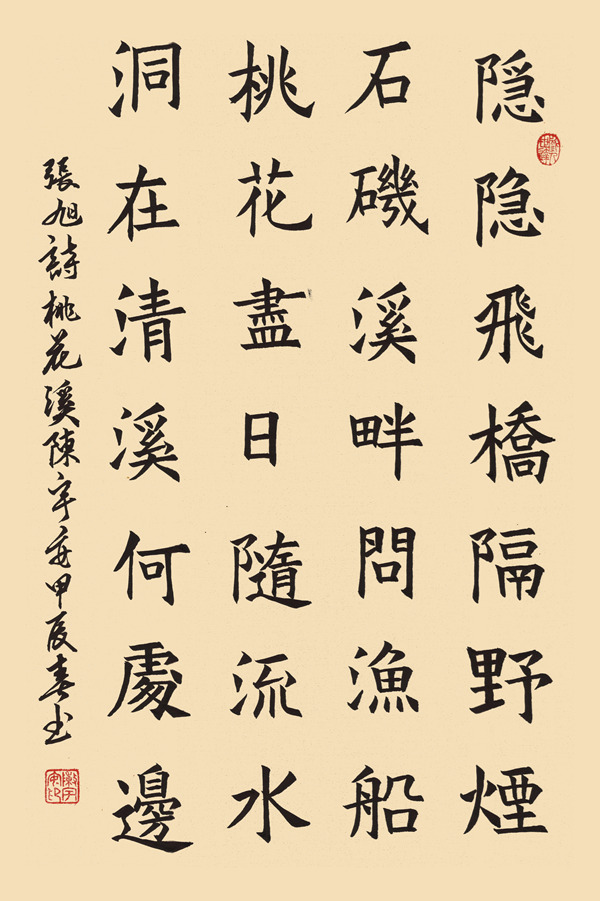 隐隐飛橋隔野煙
石磯溪畔問漁船
桃花盡日隨流水
洞在清溪何處邊
張旭詩桃花溪陳宇安甲辰春书